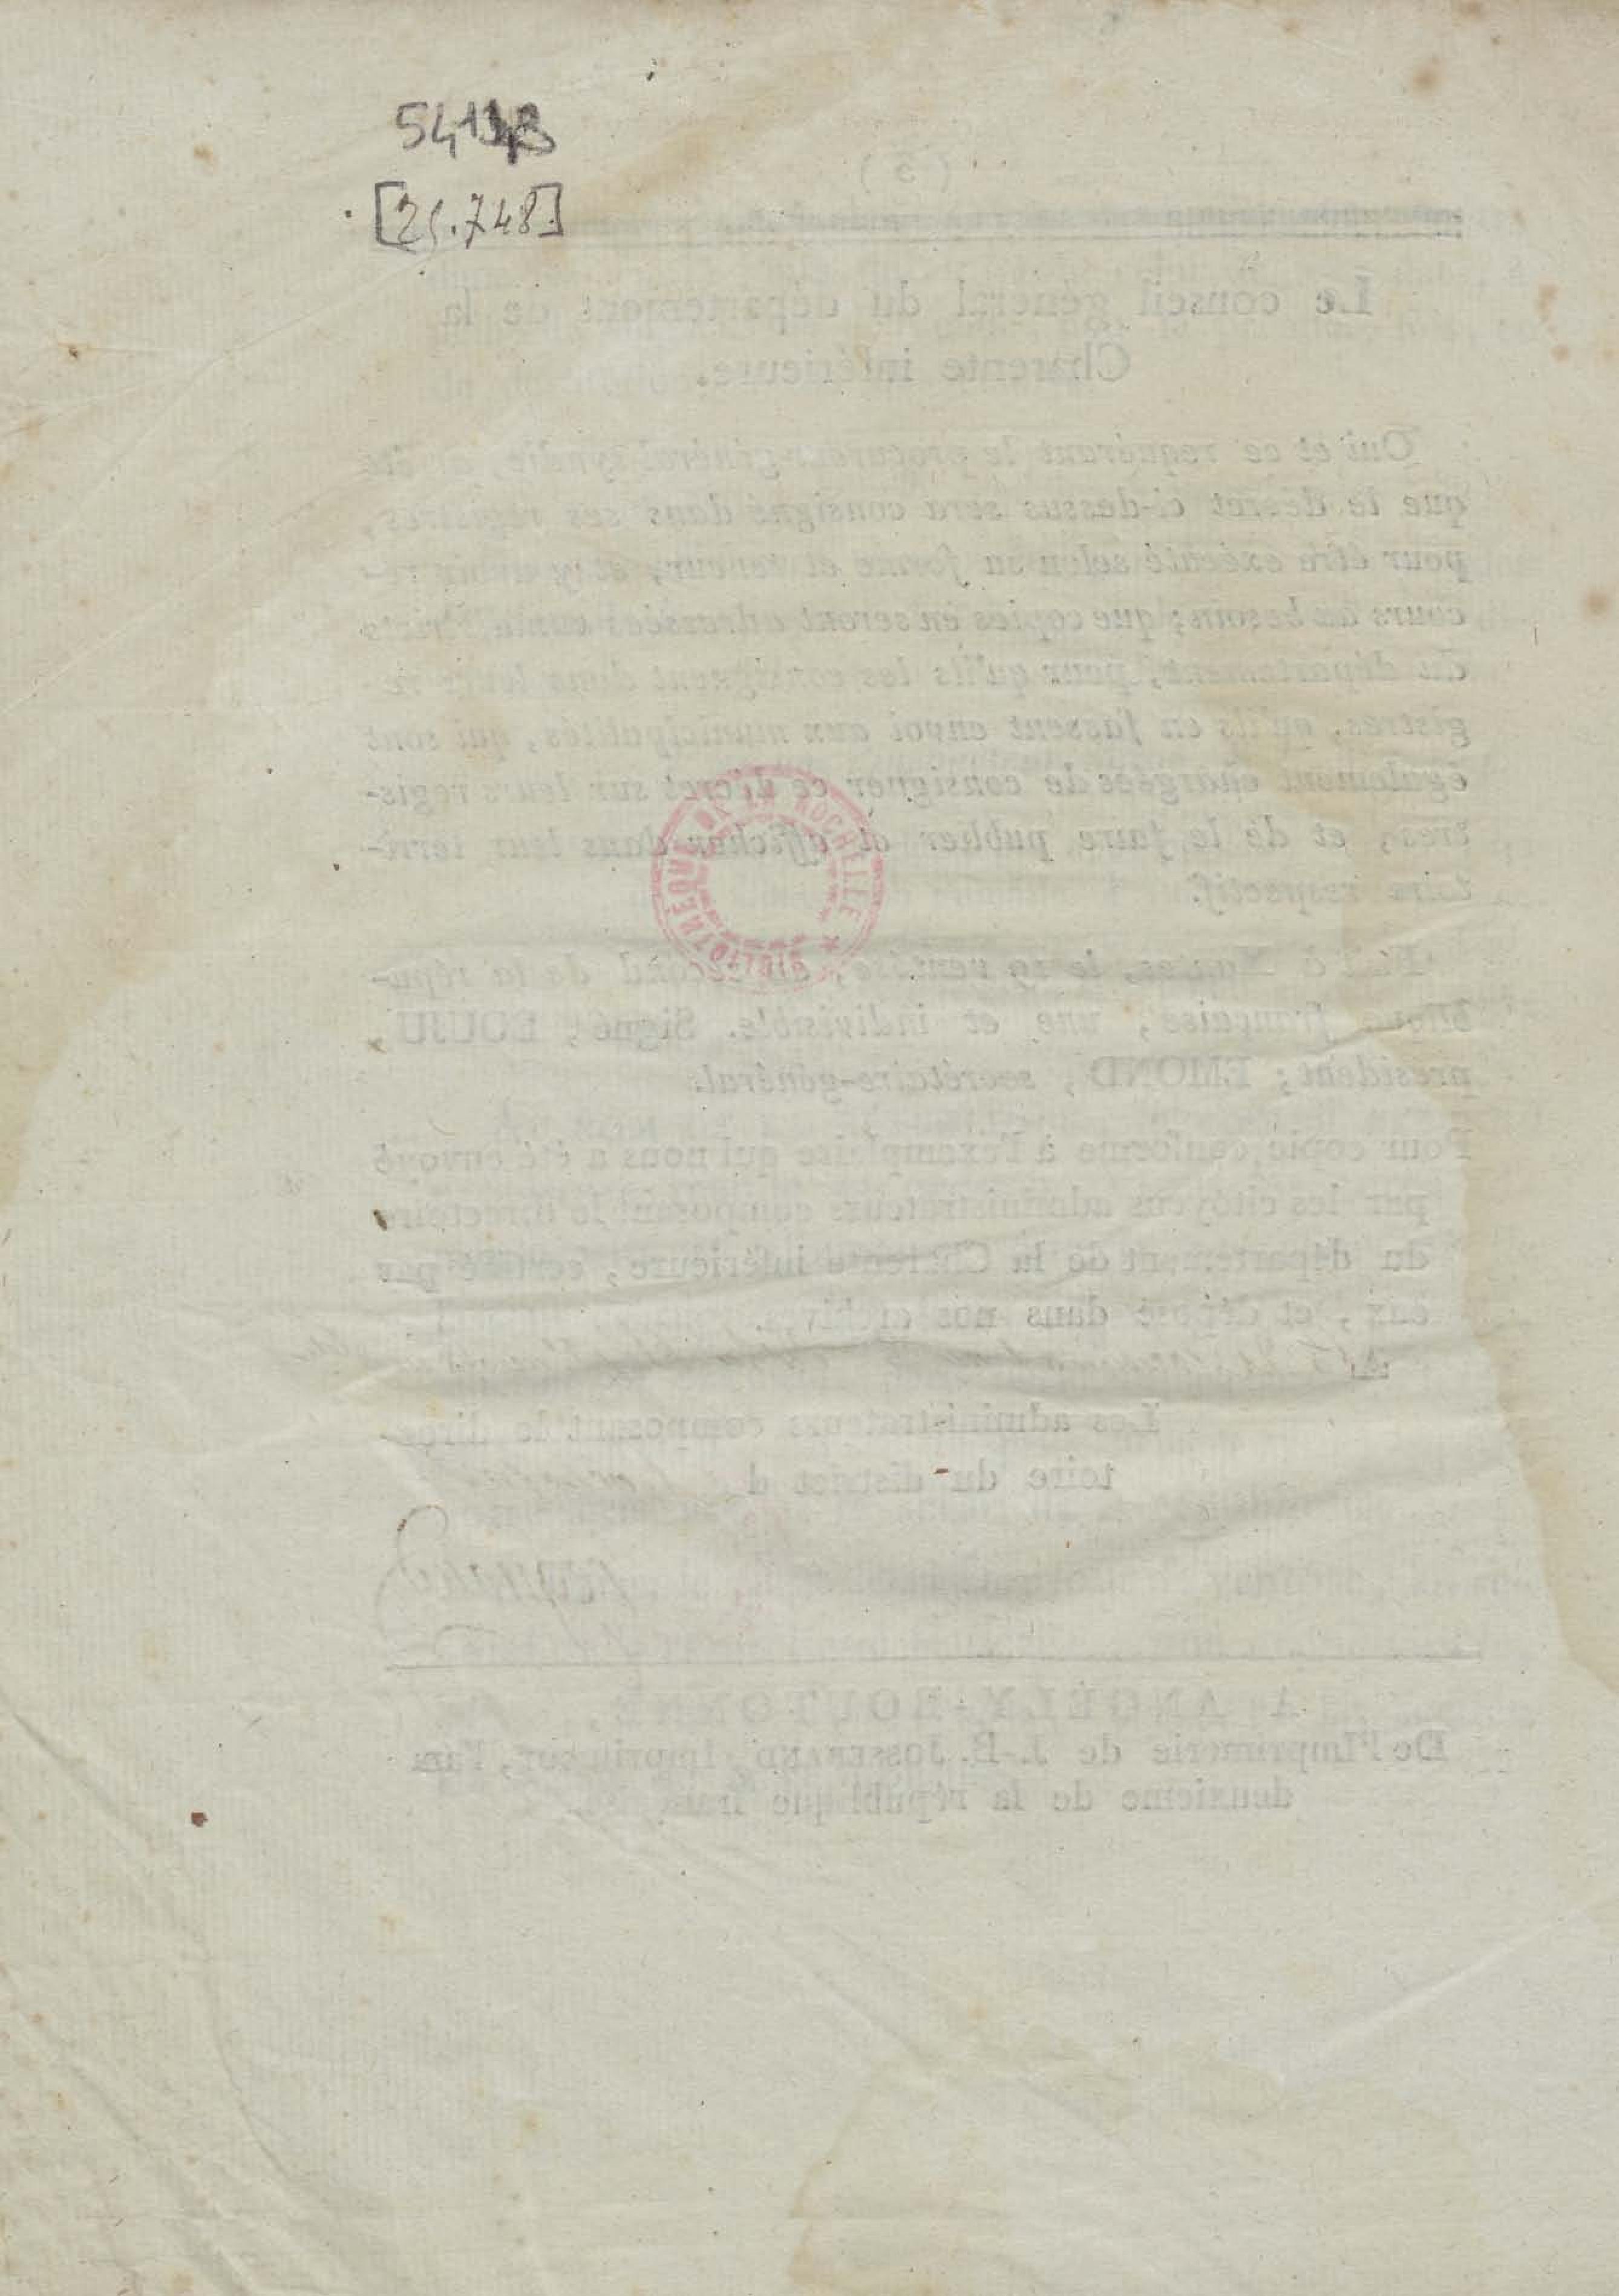 [25.748]
BIBLIOTHÈQUE DE LA ROCHELLE
( 3 )
Le conseil général du département de la
Charente inférieure.
Oui et ce requérant le procureur-général-syndic, arrête
que le décret ci-dessus sera consigné dans ses registres,
pour être exécuté selon sa forme et teneur, et y avoir re-
cours au besoin; que copies en seront adressées aux districts
du département, pour qu'ils les consignent dans leurs re-
gistres, qu'ils en fassent envoi aux municipalités, qui sont
également chargées de consigner ce décret sur leurs regis-
tres, et de le faire publier et afficher dans leur terri-
toire respectif.
Fait à Xantes, le 19 ventôse, an second de la répu-
blique française, une et indivisible. Signé, ECUJU,
président; EMOND, secrétaire-général.
Pour copie conforme à l'exemplaire qui nous a été envoyé
par les citoyens administrateurs composant le directoire
du département de la Charente inférieure, certifié par
eux, et déposé dans nos archives.
Les administrateurs composant le direc-
toire du district d
A ANGELY-BOUTONNE,
De l'Imprimerie de J.-B. JOSSERAND, Imprimeur, l'an
deuxieme de la république